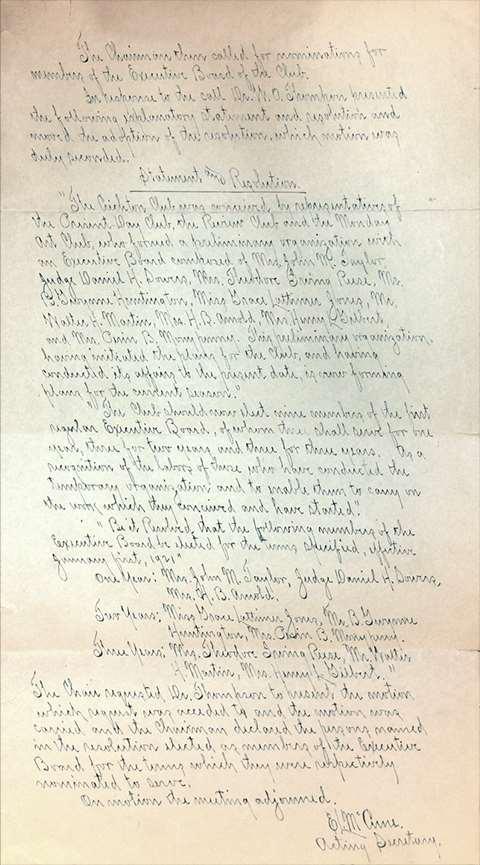 The Chairman then called for nominations for
members of the Executive Board of the Club.
In response to the call Dr. W. O. Thompson presented
the following explanatory statement and resolution and
moved the adoption of the resolution, which motion was
duly seconded.
Statement and Resolution.
"The Crichton Club was conceived by representatives of
the Present Day Club, the Review Club and the Monday
Art Club, who formed a preliminary organization with
an Executive Board composed of Mrs. John M. Taylor,
Judge Daniel H. Sowers, Mrs. Theodore Irving Reese, Mr.
B. Gwynne Huntington, Miss Grace Lattimer Jones, Mr.
Walter H. Martin, Mrs. H. B. Arnold, Mrs. Henry L. Gilbert,
and Mrs. Orin B. This preliminary organization,
having initiated the plans for the Club, and having
conducted its affairs to the present date, is now forming
plans for the current season."
"The Club should now elect nine members of the first
regular Executive Board, of whom three shall serve for one
year, three for two years and three for three years. As a
recognition of the labors of those who have conducted the
temporary organization and to enable them to carry on
the work which they conceived and have started".
"Be it Resolved, that the following members of the
Executive Board be elected for the terms specified, effective
January first, 1921"
One Year: Mrs. John M. Taylor, Judge Daniel H. Sowers,
Mrs. H. B. Arnold.
Two Years: Miss Grace Lattimer Jones, Mr. B. Gwynne
Huntington, Mrs. Orin B.
Three Years: Mrs. Theodore Irving Reese, Mr. Walter
H. Martin, Mrs. Henry L. Gilbert."
The Chair requested Dr. Thompson to present the motion
which request was acceded to and the motion was
carried and the Chairman declared the persons named
in the resolution elected as members of the Executive
Board for the terms which they were respectively
nominated to serve.
On motion the meeting adjourned.
Acting Secretary.